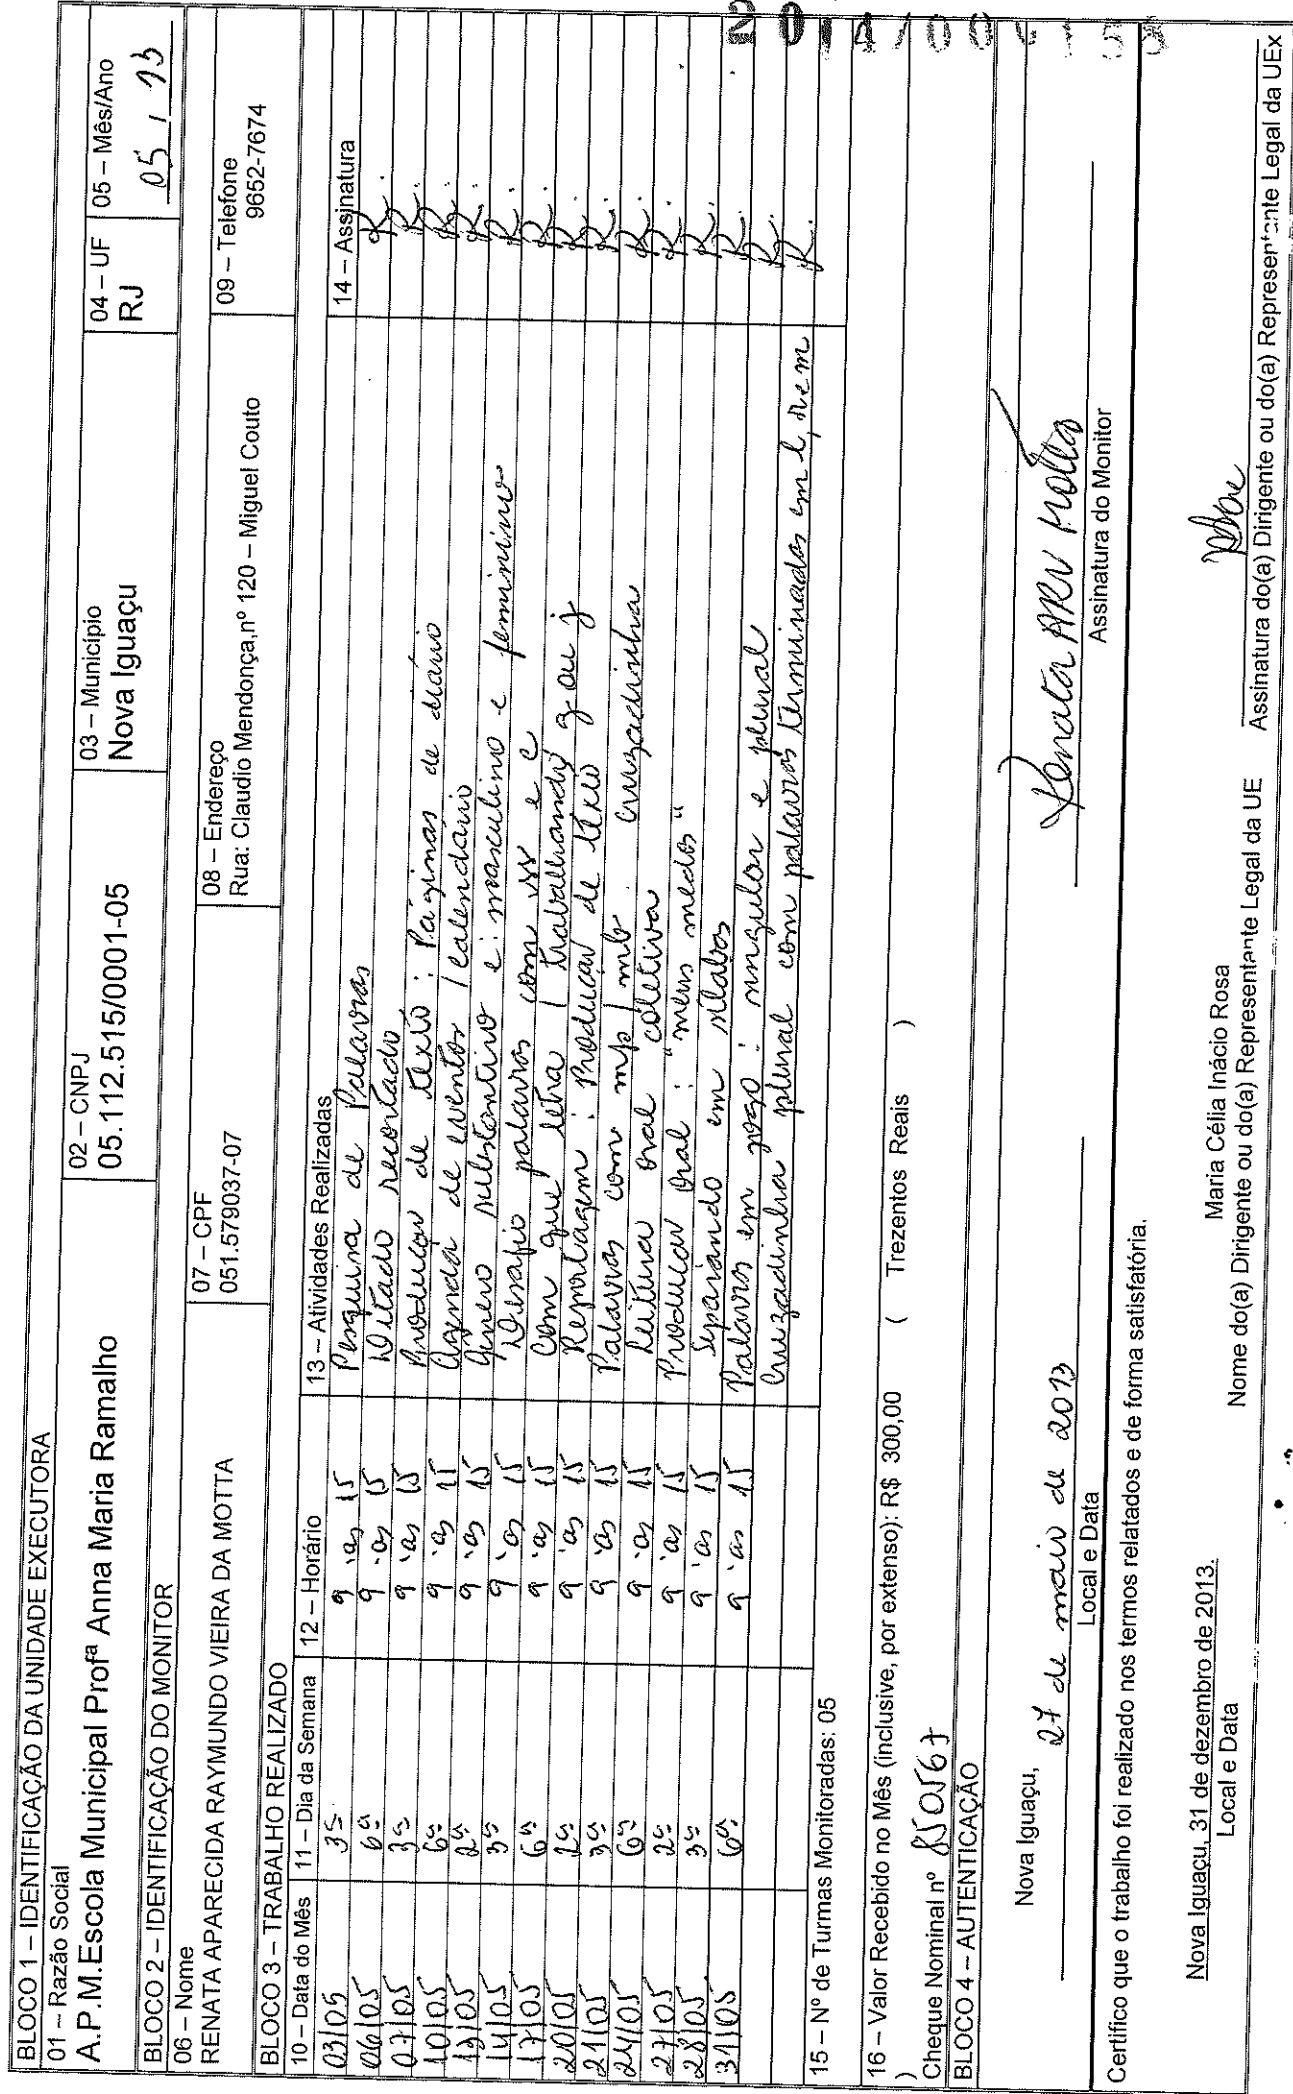 BLOCO 1 – IDENTIFICAÇÃO DA UNIDADE EXECUTORA
01 – Razão Social
A.P.M.Escola Municipal Profª Anna Maria Ramalho
02 – CNPJ
05.112.515/0001-05
03 – Município
Nova Iguaçu
04 – UF
RJ
05 – Mês/Ano
05 / 13
BLOCO 2 – IDENTIFICAÇÃO DO MONITOR
06 – Nome
RENATA APARECIDA RAYMUNDO VIEIRA DA MOTTA
07 – CPF
051.579037-07
08 – Endereço
Rua: Claudio Mendonça,nº 120 – Miguel Couto
09 – Telefone
9652-7674
BLOCO 3 – TRABALHO REALIZADO
10 – Data do Mês 11 – Dia da Semana 12 – Horário 13 – Atividades Realizadas 14 – Assinatura
03/05 3ª 9 às 15 Pesquisa de Palavras R.
06/05 6ª 9 às 15 Ditado recortado R.
07/05 3ª 9 às 15 Produção de texto : Páginas de diário R.
10/05 6ª 9 às 15 Agenda de eventos / calendário R.
13/05 2ª 9 às 15 Gênero substantivo e: masculino e feminino R.
14/05 3ª 9 às 15 Desafio palavras com ss e c R.
17/05 6ª 9 às 15 Com que letra / trabalhando g ou j R.
20/05 2ª 9 às 15 Reportagem : Produção de texto R.
21/05 3ª 9 às 15 Palavras com mp / mb. cruzadinha R.
24/05 6ª 9 às 15 Leitura oral coletiva R.
27/05 2ª 9 às 15 Produção oral : "meus medos" R.
28/05 3ª 9 às 15 Separando em sílabas R.
31/05 6ª 9 às 15 Palavras em jogo : singular e plural R.
Cruzadinha plural com palavras terminadas em l, r e m R.
15 – Nº de Turmas Monitoradas: 05
16 – Valor Recebido no Mês (inclusive, por extenso): R$ 300,00 ( Trezentos Reais )
)
Cheque Nominal nº 850567
BLOCO 4 – AUTENTICAÇÃO
Nova Iguaçu, 27 de maio de 2013
Local e Data
Renata ARV Motta
Assinatura do Monitor
Certifico que o trabalho foi realizado nos termos relatados e de forma satisfatória.
Nova Iguaçu, 31 de dezembro de 2013.
Local e Data
Maria Célia Inácio Rosa
Nome do(a) Dirigente ou do(a) Representante Legal da UE
Assinatura do(a) Dirigente ou do(a) Representante Legal da UEx